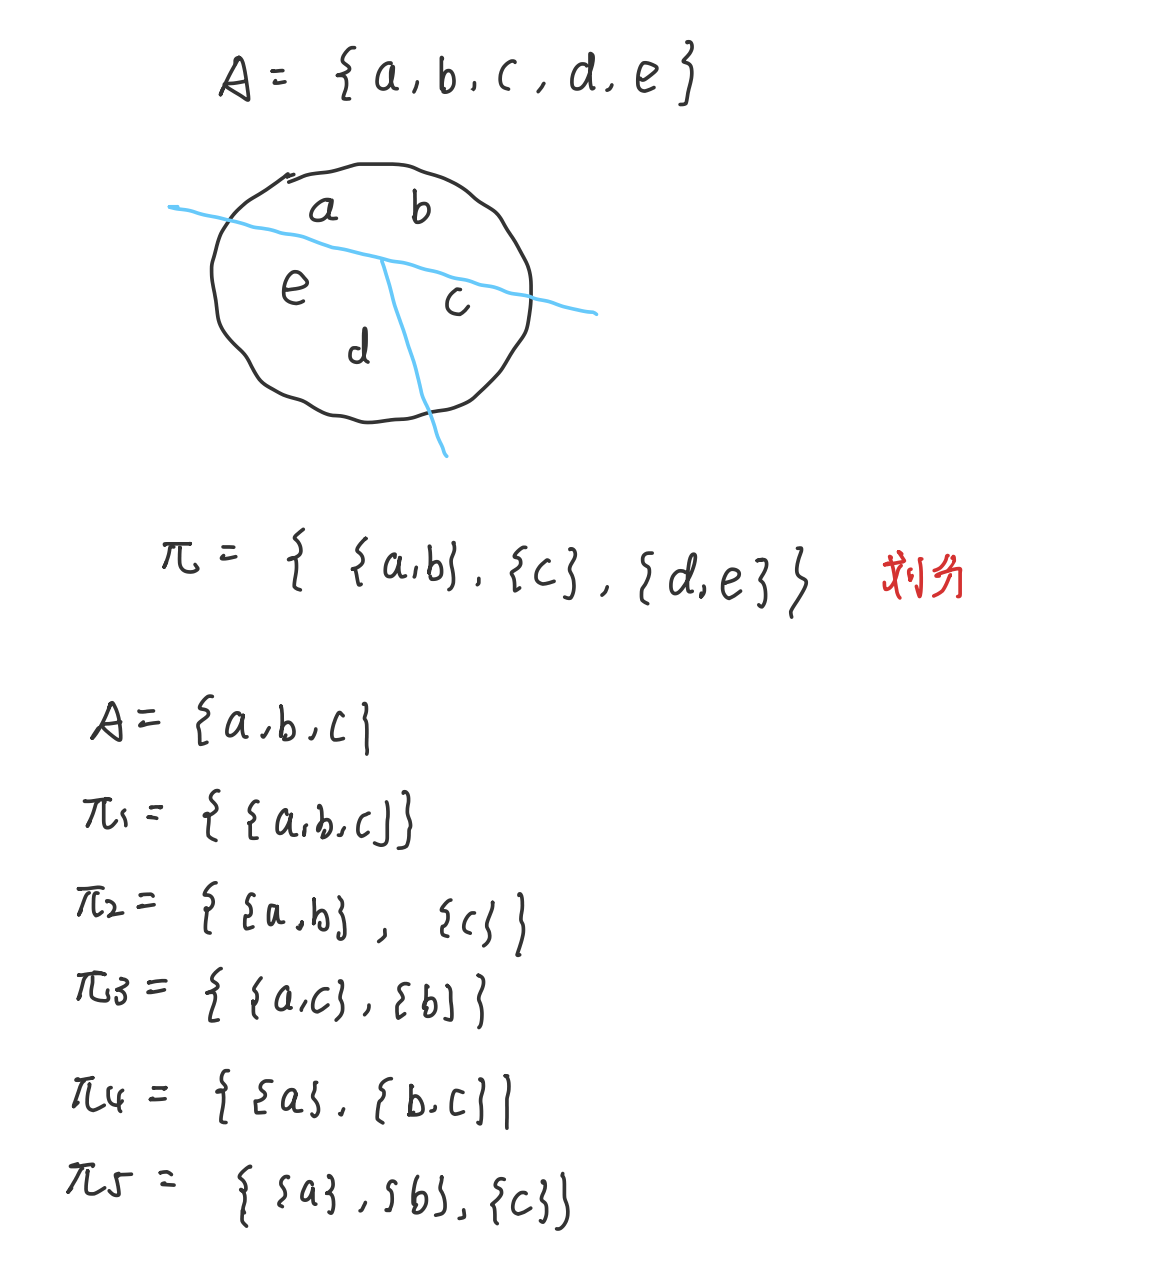 A = { a, b, c, d, e }
a b
e c
d
π = { {a,b}, {c}, {d,e} } 划分
A = {a,b,c}
π1 = { {a,b,c} }
π2 = { {a,b}, {c} }
π3 = { {a,c}, {b} }
π4 = { {a}, {b,c} }
π5 = { {a}, {b}, {c} }